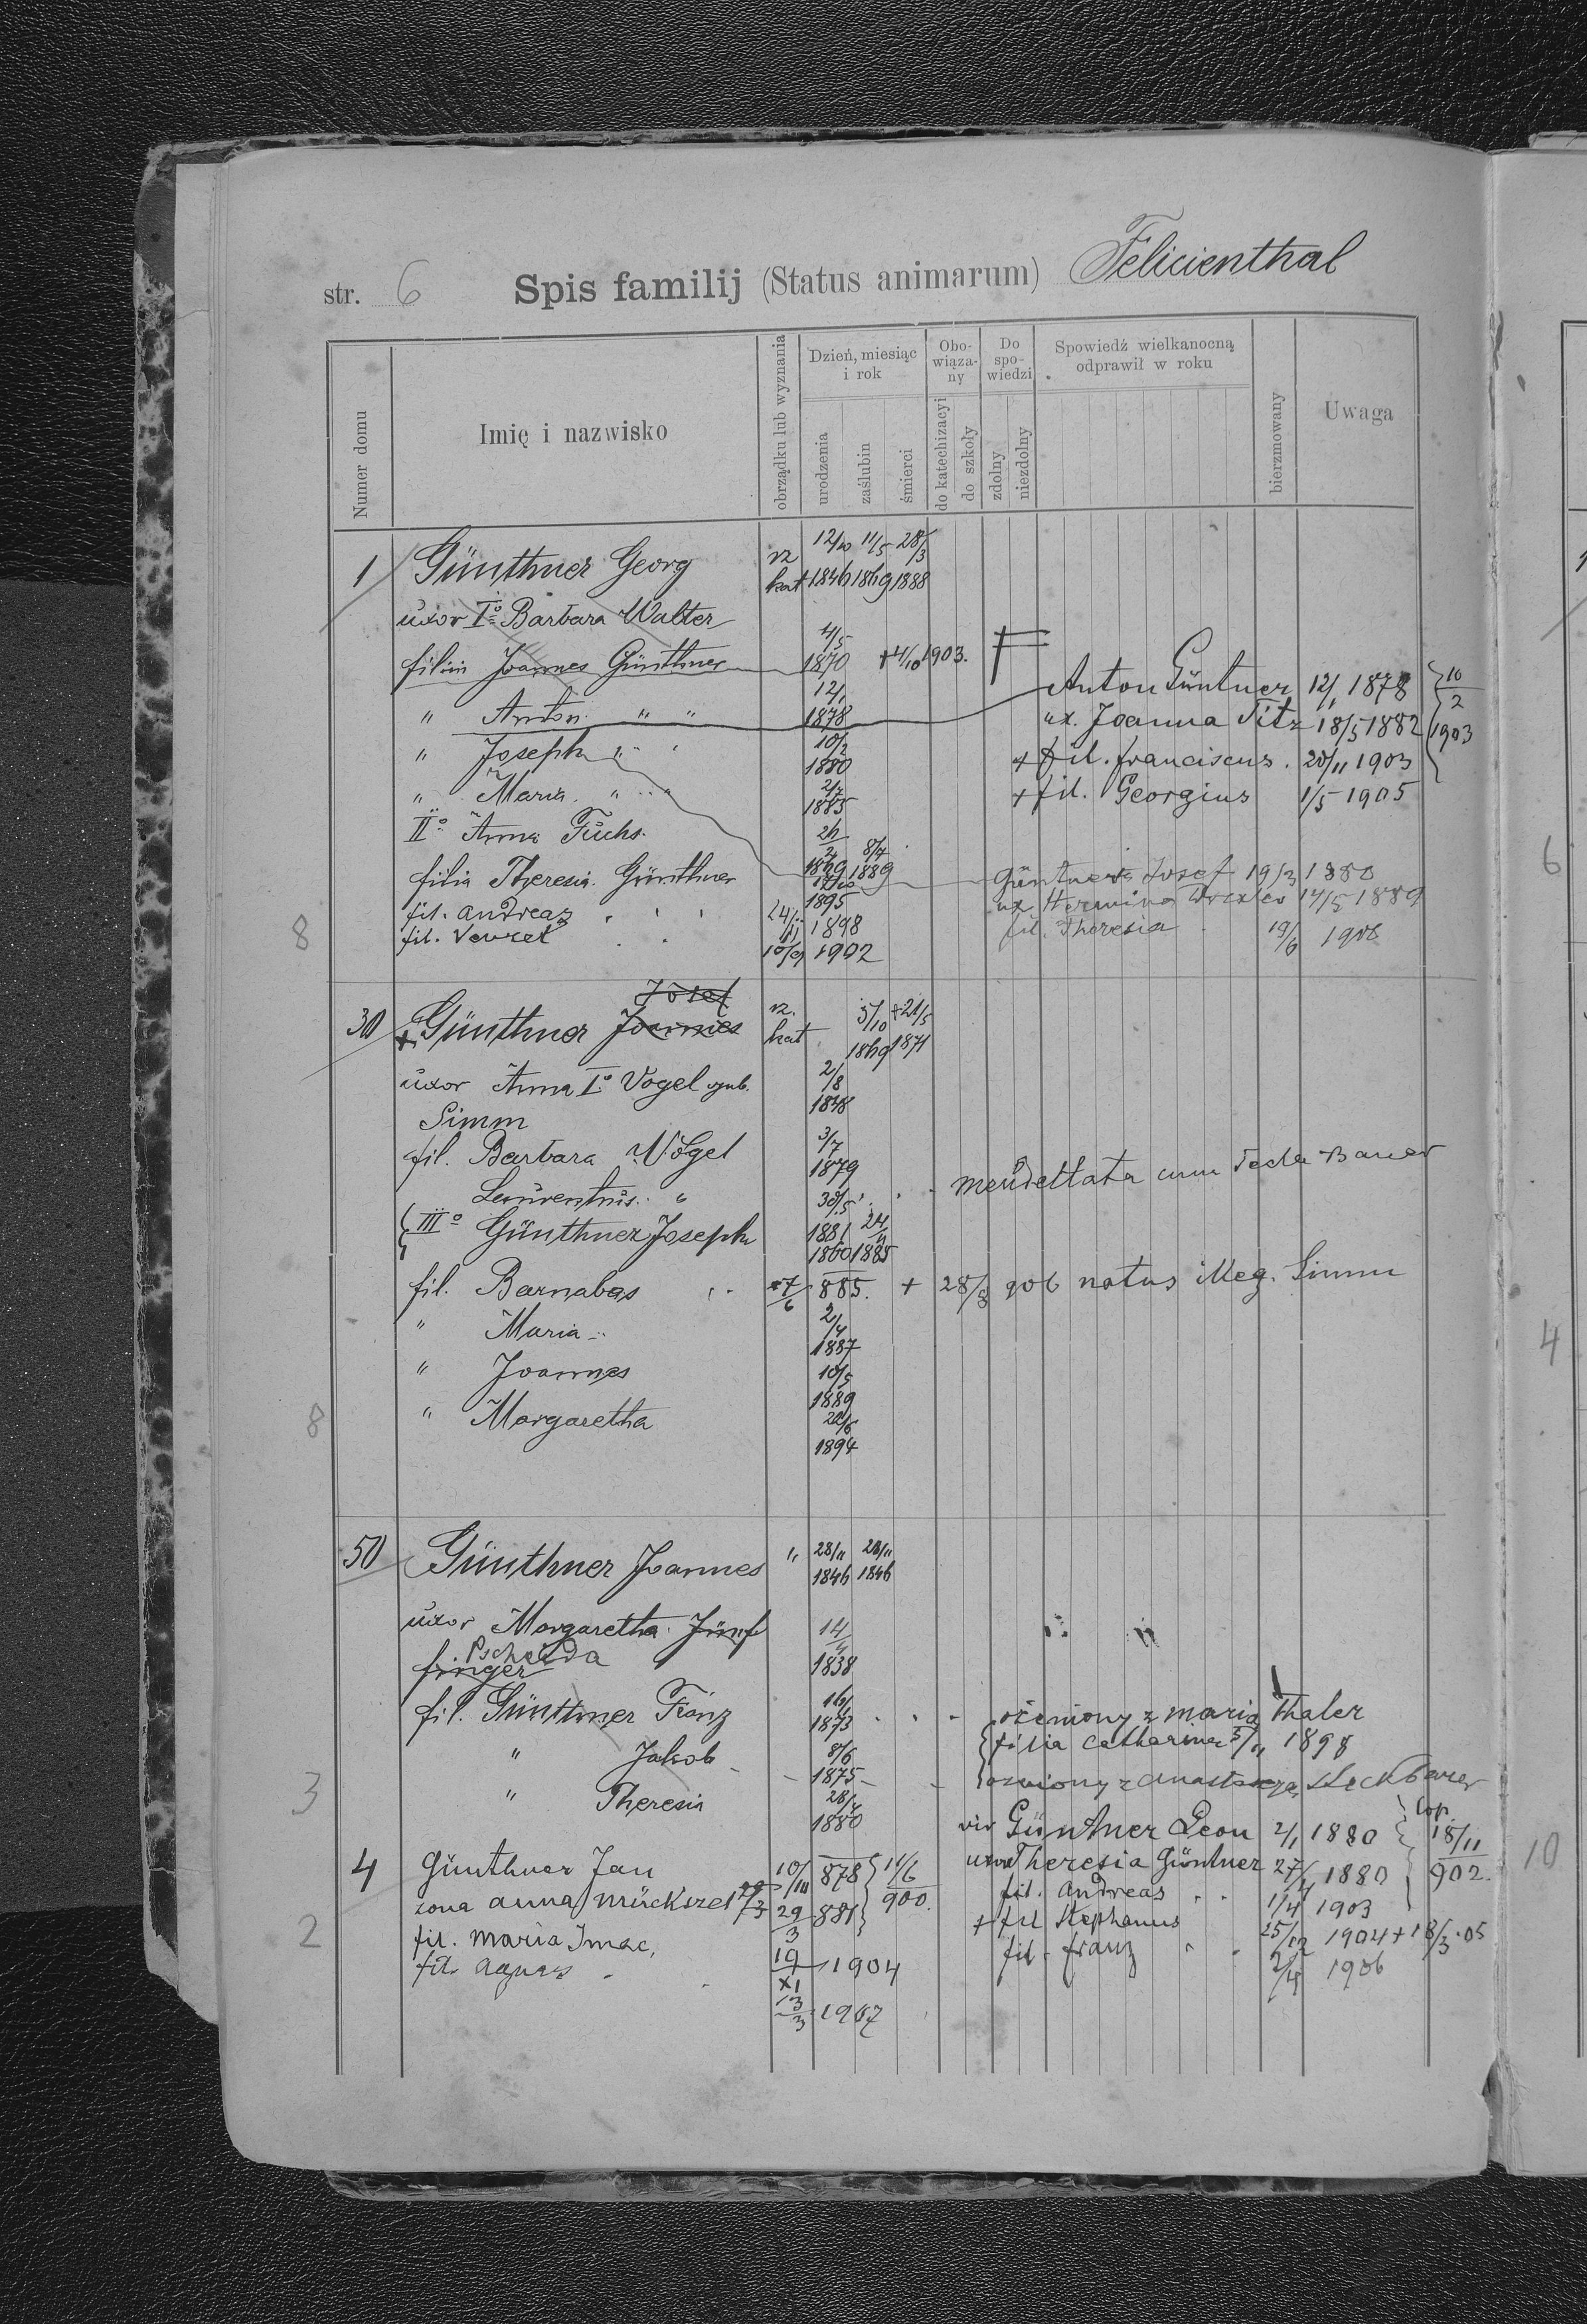 str. 6 Spis familij (Status animarum) Felicienthal
Numer domu
Imię i nazwisko
obrządku lub wyznania
Dzień, miesiąc i rok
urodzenia
zaślubin
śmierci
Obo-
wiąza-
ny
do katechizacyi
do szkoły
Do
spo-
wiedzi
zdolny
niezdolny
Spowiedź wielkanocną
odprawił w roku
bierzmowany
Uwaga
1 Günthner Georg rz kat 12/10 1846 11/5 1869 28/3 1888
uxor I° Barbara Walter
filius Joannes Günthner 4/5 1870 + 4/10 1903.
" Anton " " 12/1 1878
" Joseph " " 10/2 1880
" Maria " " 2/7 1885
II° Anna Fuchs 1869 8/7 1889
filia Theresia Günthner 1895
fil. Andreas 24/11 1898
fil. Venzel 10/9 1902
Anton Güntner 12/1 1878 10/2 1903
ux. Joanna Titz 18/5 1882
+ fil. franciscus. 20/11 1903
+ fil. Georgius 1/5 1905
Güntner Josef 19/3 1880
ux Hermina Drexler 14/5 1889
fil. Theresia 19/6 1908
8
30 + Günthner Joannes Josef rz. kat 5/10 1869 +21/5 1871
uxor Anna I° Vogel gub. 2/8 1848
Simm
fil. Barbara Vogel 3/7 1879
Laurentius " 30/5 1881
III° Günthner Joseph 1860 24/11 1885
fil. Barnabas 7/6 885. + 28/8 906 natus illeg. Simm
" Maria 2/4 1887
" Joannes 10/5 1889
" Margaretha 22/6 1894
cum Bauer
8
50 Günthner Joannes " 28/11 1846 28/11 1846
uxor Margaretha Fünf 14/4 1838
finger Pscheida
fil. Günthner Franz 16/ 1873 ożeniony z maria Thaler
filia Catharina 5/11 1898
" Jakob 8/6 1875 ożeniony z Anastazya
" Theresia 28/4 1880
3
vir Güntner Leon 2/1 1880 cop. 18/11 902.
uxor Theresia Güntner 27/ 1880
fil. Andreas 1/4 1903
+ fil Stephanus 25/12 1904 + 18/3 .05
fil. franz 2/4 1906
4 Günthner Jan 10/III 878 11/6 900.
żona anna 29/3 881
fil. Maria Imac. 19/XI 1904
fil. agnes 13/3 1907
2
6
4
10